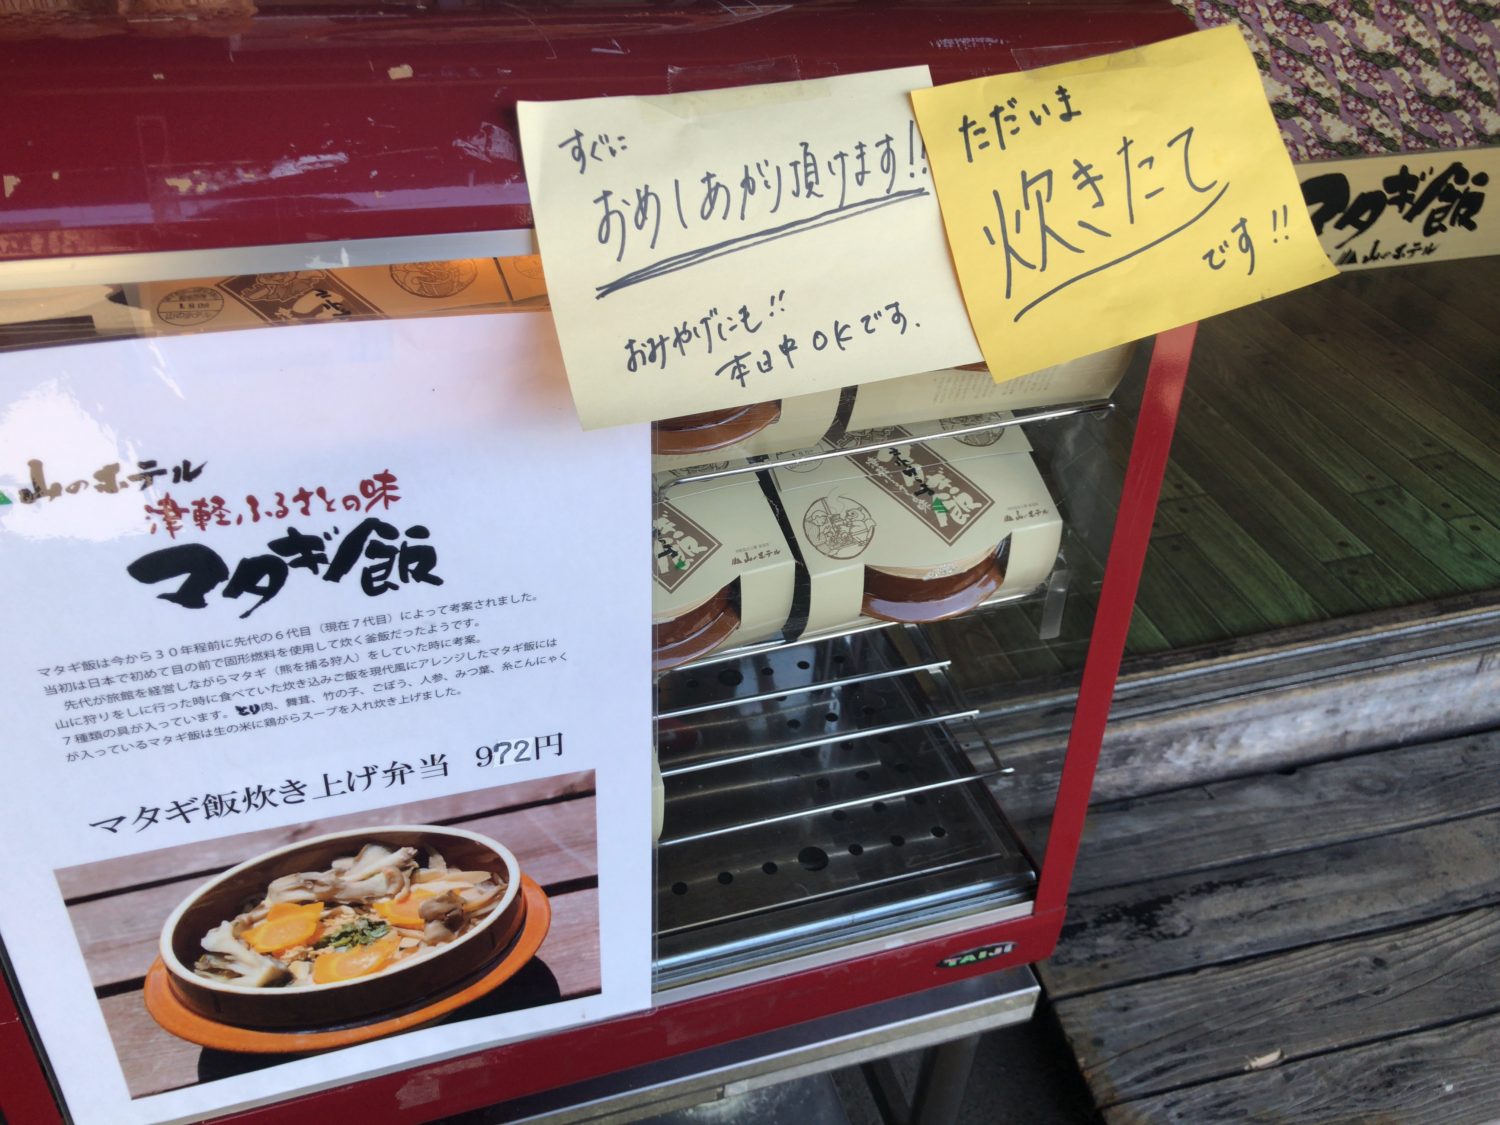 すぐに
おめしあがり頂けます!!
おみやげにも!!
本日中OKです.
ただいま
炊きたて
です!!
マタギ飯
山のホテル
山のホテル
津軽ふるさとの味
マタギ飯
マタギ飯は今から30年程前に先代の6代目（現在7代目）によって考案されました。
当初は日本で初めて目の前で固形燃料を使用して炊く釜飯だったようです。
先代が旅館を経営しながらマタギ（熊を捕る狩人）をしていた時に考案。
山に狩りをしに行った時に食べていた炊き込みご飯を現代風にアレンジしたマタギ飯には
7種類の具が入っています。とり肉、舞茸、竹の子、ごぼう、人参、みつ葉、糸こんにゃく
が入っているマタギ飯は生の米に鶏がらスープを入れ炊き上げました。
マタギ飯炊き上げ弁当 972円
山のホテル
山のホテル
TAIJI